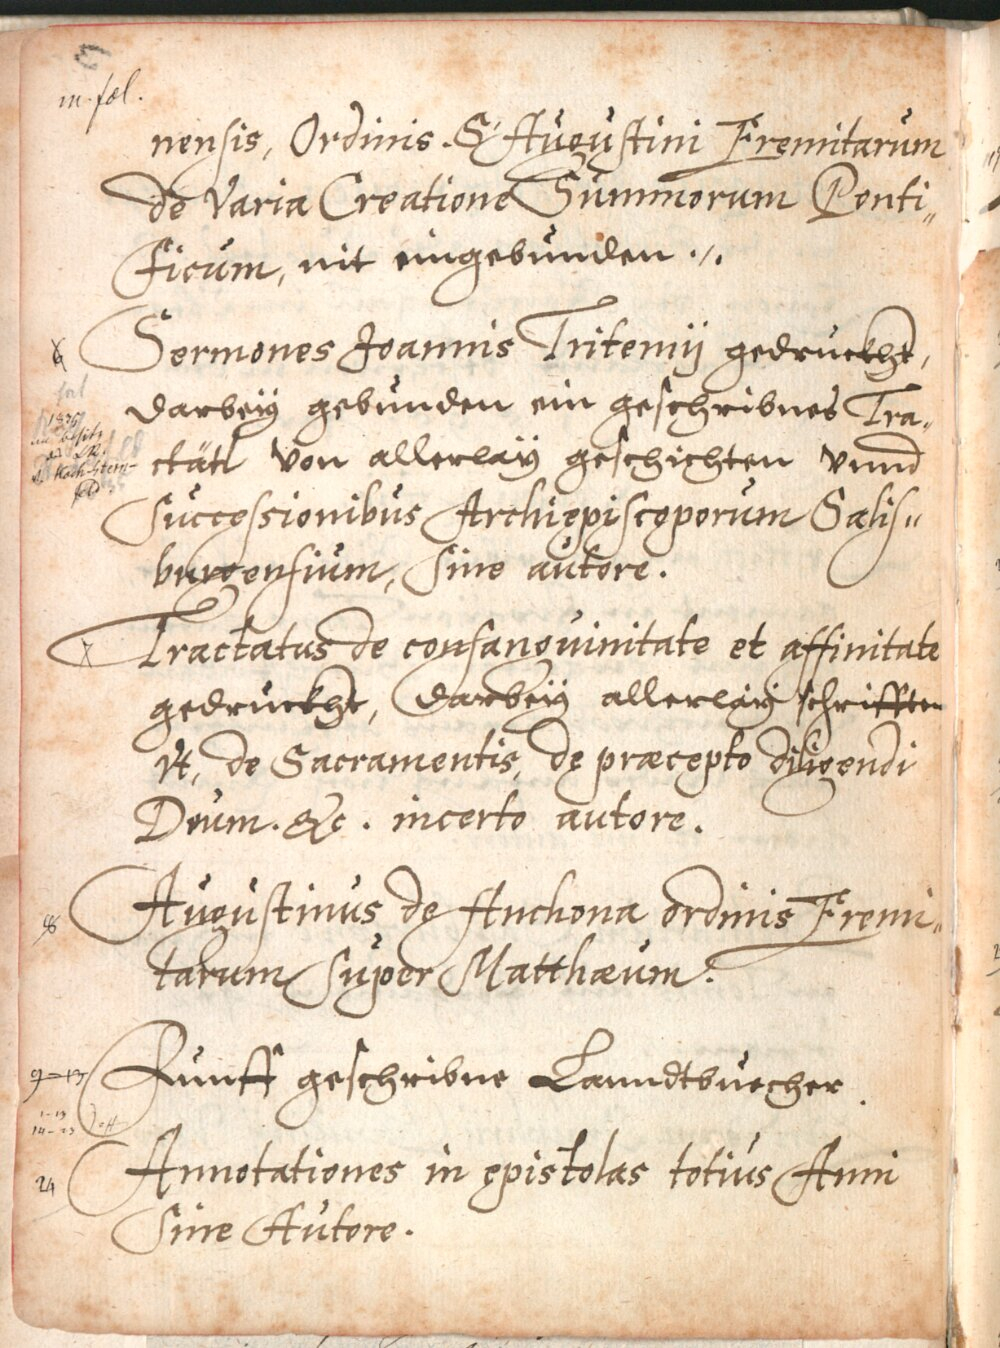 in fol.
nensis, Ordinis. S. Augustini Eremitarum
de Varia Creatione Summorum Ponti„
ficum, nit eingebunden ./.
6 Sermones Joannis Tritemij gedruckht,
darbeÿ gebunden ein geschribnes Tra„
ctätl von allerlaÿ geschichten vnnd
Successionibus Archiepiscoporum Salis„
burgensium, sine autore.
7 Tractatus de consanguinitate et affinitate
gedruckht, darbeÿ allerlaÿ schrifften
Vt, de Sacramentis, de præcepto diligendi
Deum. &c. incerto autore.
8 Augustinus de Anchona ordinis Eremi„
tarum super Matthæum.
9-13 Funff geschribne Lanndtbuecher.
14-23
24 Annotationes in epistolas totius Anni
sine Autore.